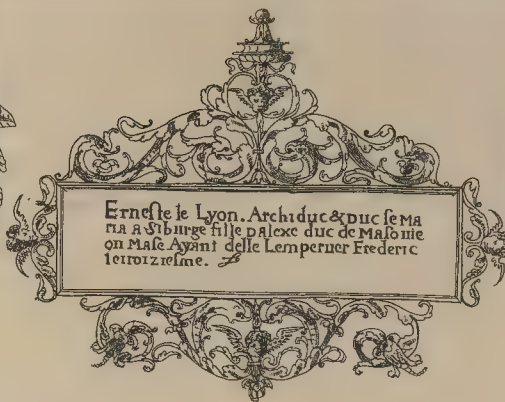 Erneste le Lyon. Archiduc & Duc se Ma
ria a Siburge fille Dalexe duc de Masouie
on Mase. Ayant delle Lemperuer Frederic
leiroizielme.